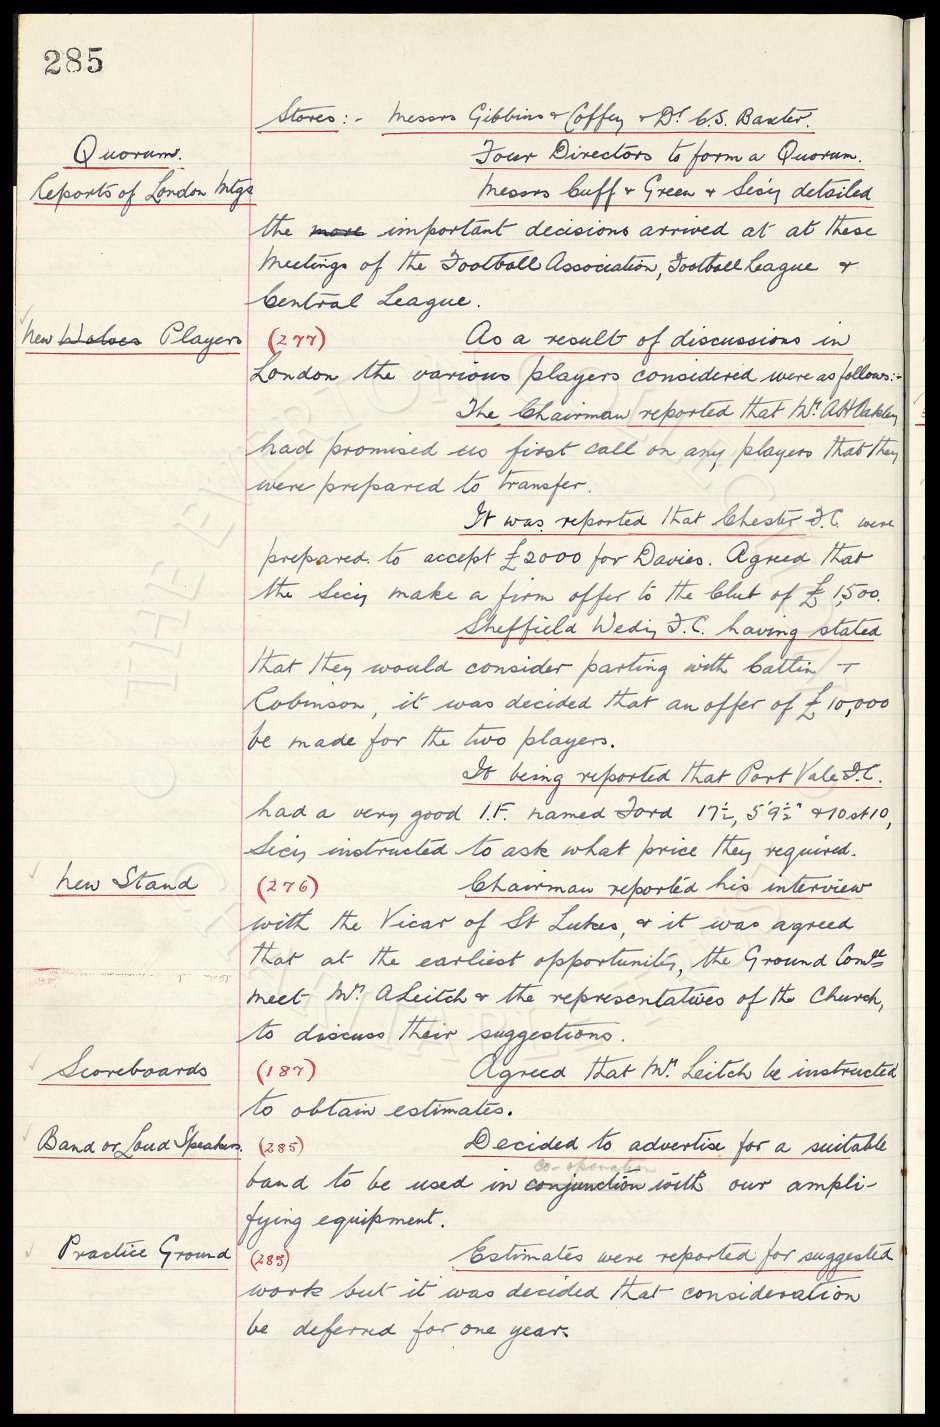 285
Stores:- Messrs Gibbins & Coffey & Dr. C.S. Baxter.
Quorum. Four Directors to form a Quorum.
Reports of London Mtgs Messrs Cuff & Green & Secy detailed
the more important decisions arrived at at these
Meetings of the Football Association, Football League &
Central League.
New Wolves Players (277) As a result of discussions in
London the various players considered were as follows:-
The Chairman reported that Mr. AH Oakley
had promised us first call on any players that they
were prepared to transfer.
It was reported that Chester F.C. were
prepared to accept £2000 for Davies. Agreed that
the Secy make a firm offer to the Club of £1,500.
Sheffield Wedy F.C. having stated
that they would consider parting with Catlin &
Robinson, it was decided that an offer of £10,000
be made for the two players.
It being reported that Port Vale F.C.
had a very good I.F. named Ford 17½, 5'9½" & 10st10,
Secy instructed to ask what price they required.
New Stand (276) Chairman reported his interview
with the Vicar of St Lukes, & it was agreed
that at the earliest opportunity, the Ground Comee
meet Mr. A Leitch & the representatives of the Church,
to discuss their suggestions.
Scoreboards (187) Agreed that Mr. Leitch be instructed
to obtain estimates.
Band or Loud Speakers. (285) Decided to advertise for a suitable
co-operation
band to be used in conjunction with our ampli-
fying equipment.
Practice Ground (285) Estimates were reported for suggested
work but it was decided that consideration
be deferred for one year.